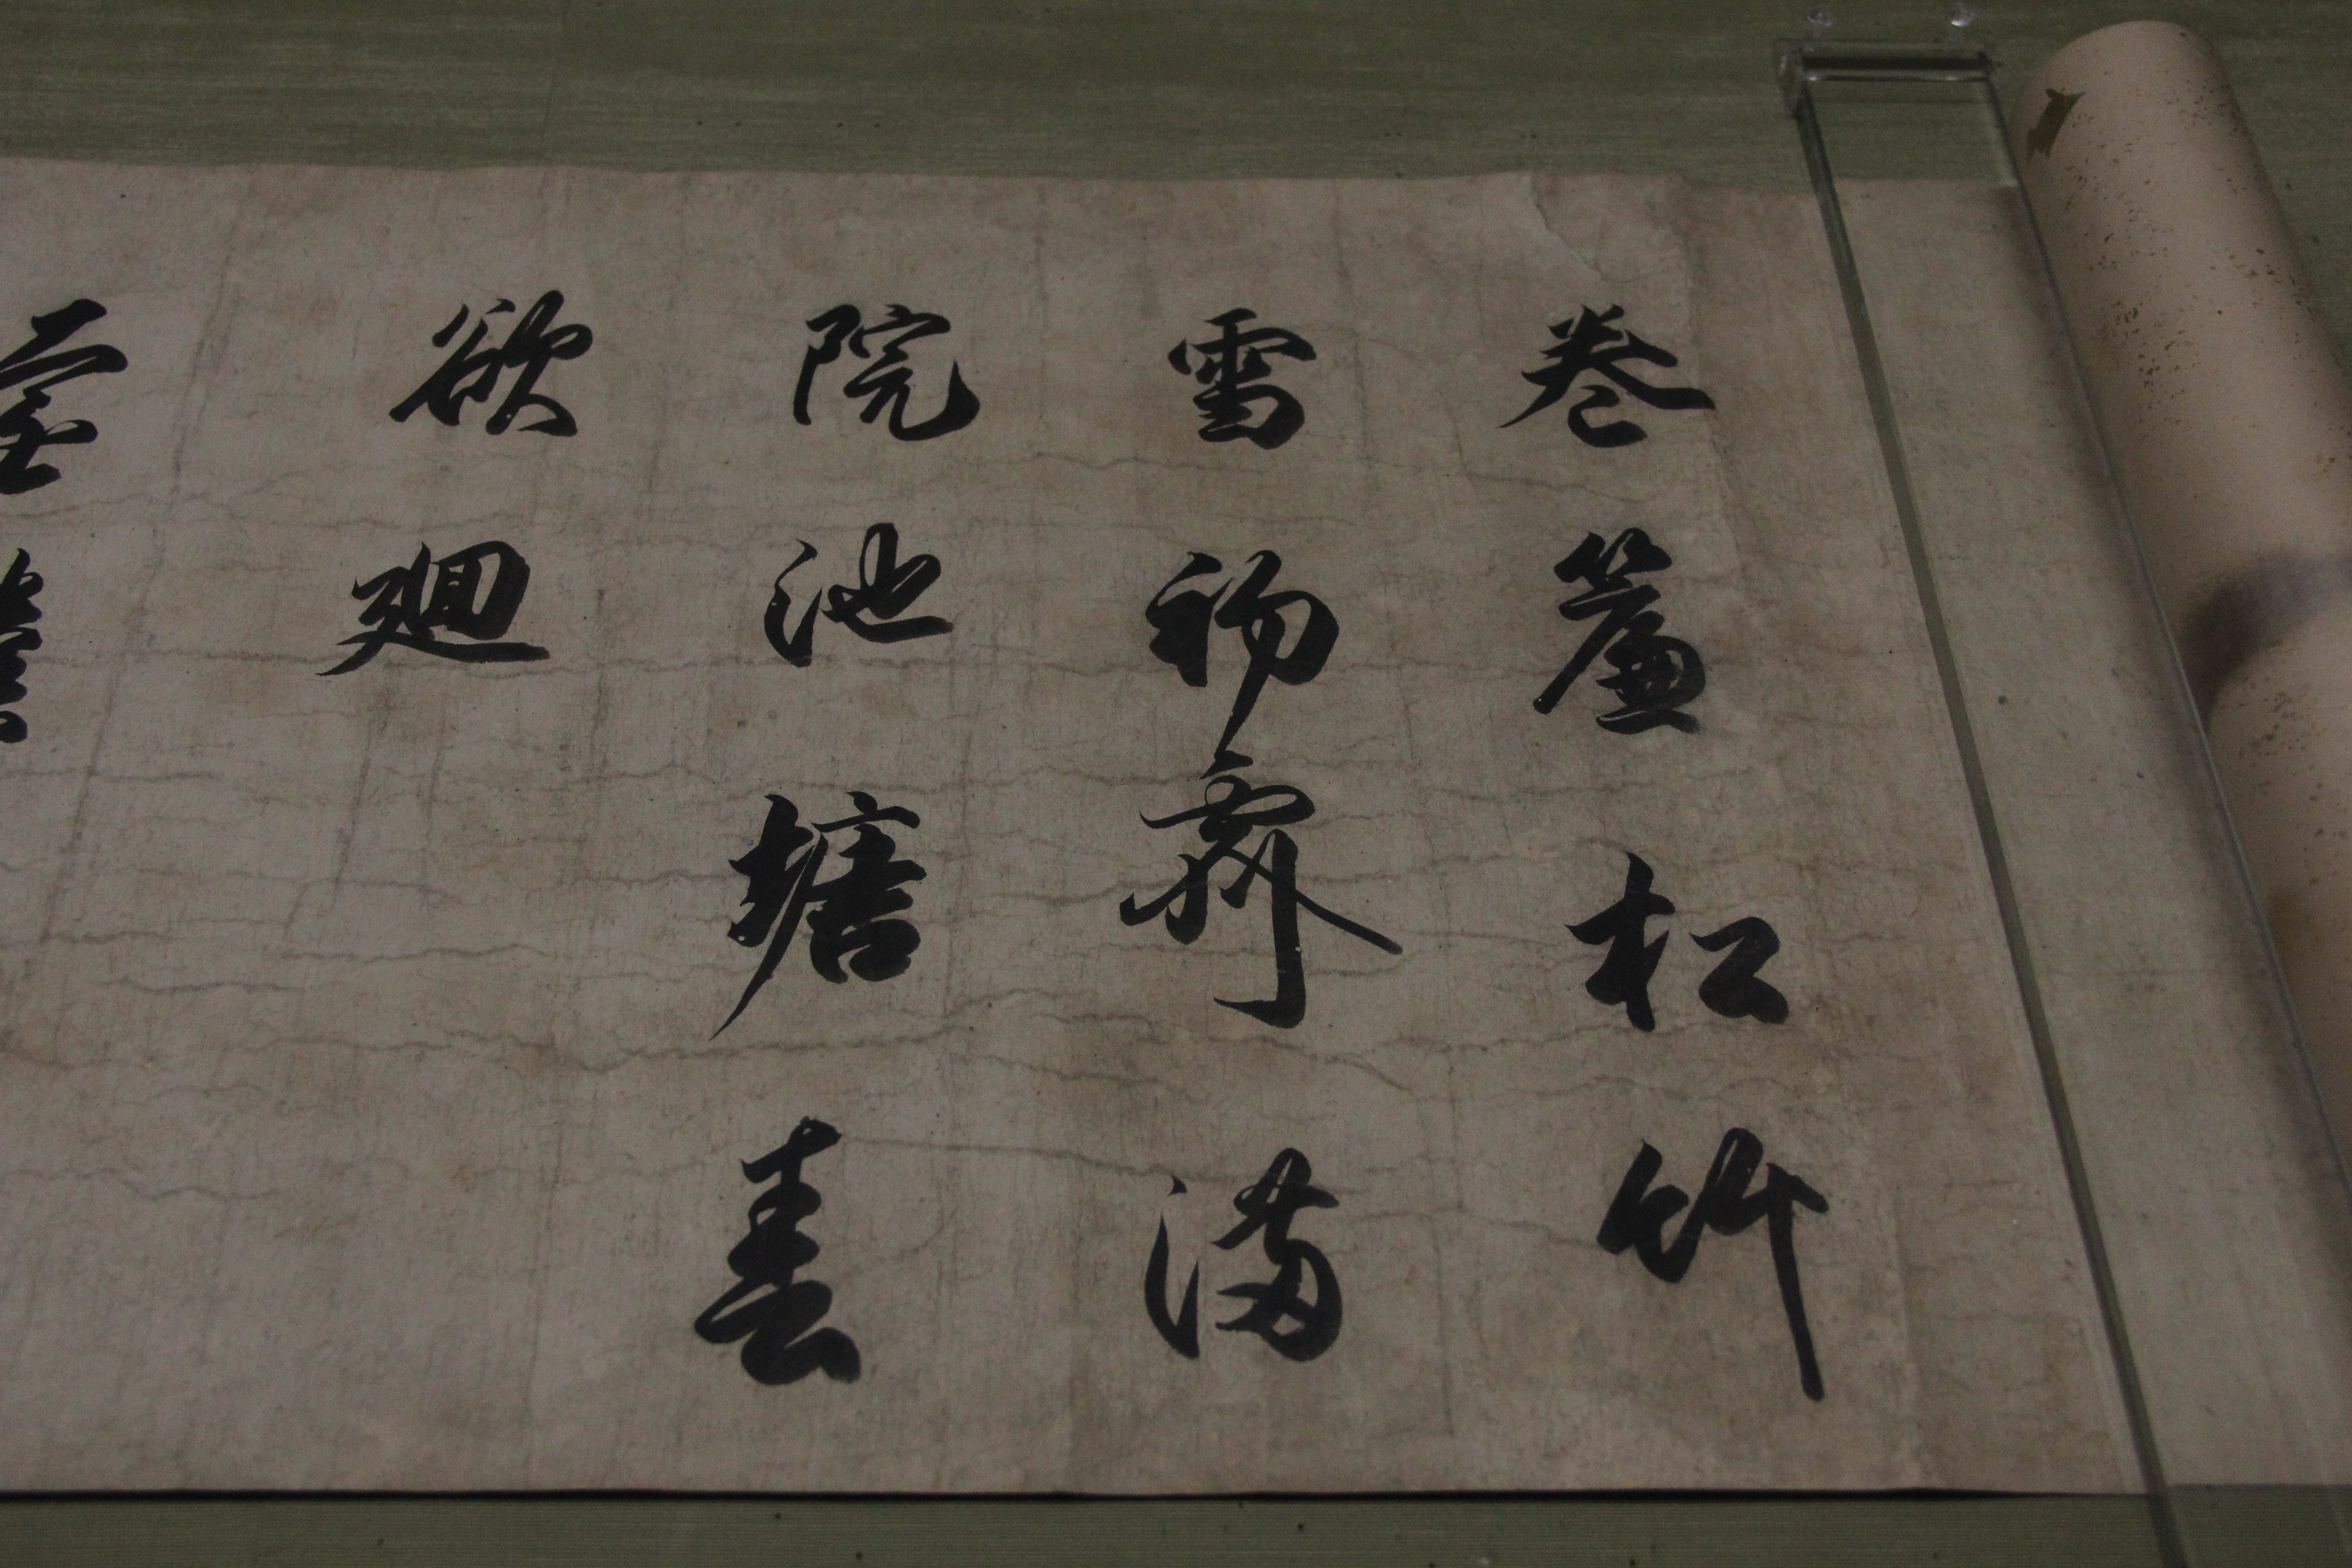 卷簾松竹
雪初霽滿
院池塘春
欲廻